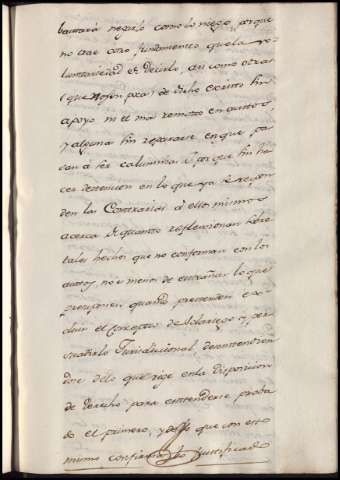 bastará negarlo como lo niego, porque
no trae otro fundamento que la vo-
luntariedad de decirlo, asi como otras
(que no son pocas) de dicho escrito sin
apoyo ni el mas remoto en autos
y alguna sin repararse en que pa-
san á ser calumnias ó porque sin ha-
cerse detencion en lo que ya se respon-
den las Contrarias á ello mismos
acerca de quanto reflexionan sobre
tales hechos que no conforman con los
autos, no es menos de extrañar lo que
proponen quando pretenden ex-
cluir el concepto de
suadirlo Jurisdiccional desentendien
dose de lo que rige en la disposicion
de derecho para entenderse proba
do el primero, y de que con esto
mismo confirma lo justificado